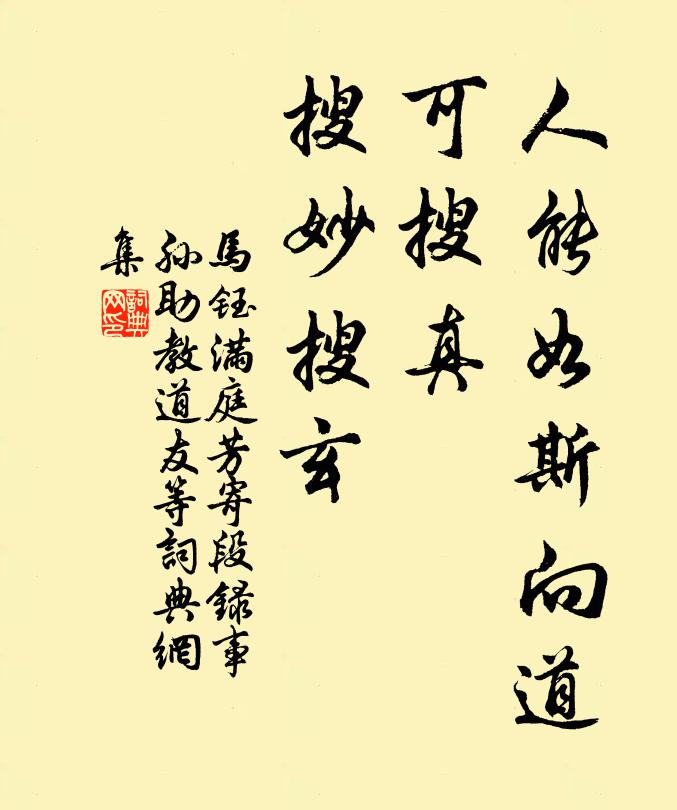 人能如斯向道
可搜真
搜妙搜玄
馬鈺滿庭芳寄段錄事
孙助教道友等詞典網
集
詞典
网印